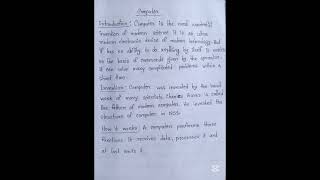 Computer
Introduction: Computer is the most wonderful
invention of modern science. It is an ultra
modern electronic device of modern technology. But
it has no ability to do anything by itself. It works
on the basis of commands given by the operators.
It can solve many complicated problems within a
short time.
Invention: Computer was invented by the hard
work of many scientists. Charles is called
the father of modern computer. He invented the
structure of computer in
How it works: A computer performs three
functions. It receives data, processes it and
at last emits it.